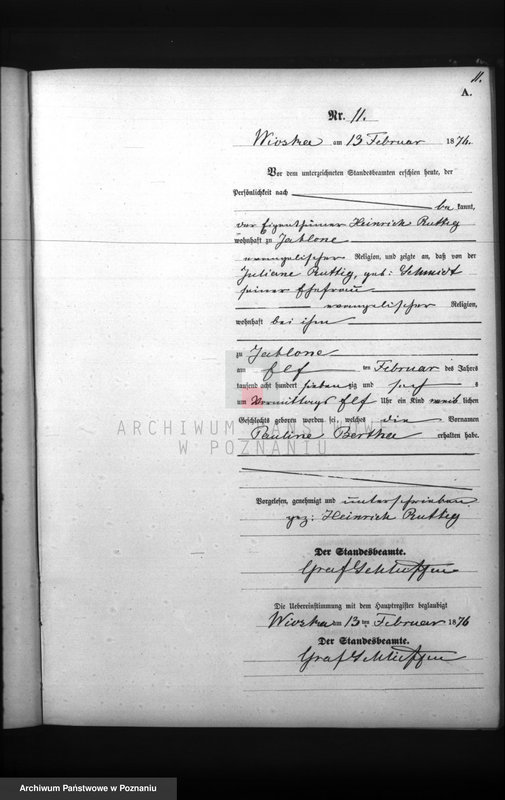 11.
A.
Nr. 11.
Wioska am 13 Februar 1876.
Vor dem unterzeichneten Standesbeamten erschien heute, der
Persönlichkeit nach
be kannt,
der Eigenthümer Heinrich Ruttig
wohnhaft zu Jablone
evangelischer Religion, und zeigte an, daß von der
Juliane Ruttig, geb: Schmidt
seiner Ehefrau
evangelischer Religion,
wohnhaft bei ihm
zu Jablone
am elf ten Februar des Jahrs
tausend acht hundert sieben zig und s
um Vormittags elf Uhr ein Kind weib lichen
Geschlechts geboren worden sei, welches die Vornamen
Pauline Bertha erhalten habe.
ARCHIWUM PAŃSTWOWE
W POZNANIU
Vorgelesen, genehmigt und unterschrieben
gez: Heinrich Ruttig
Der Standesbeamte.
Graf Schlieffen
Die Uebereinstimmung mit dem Hauptregister beglaubigt
Wioska am 13 ten Februar 1876
Der Standesbeamte.
Graf Schlieffen
Archiwum Państwowe w Poznaniu